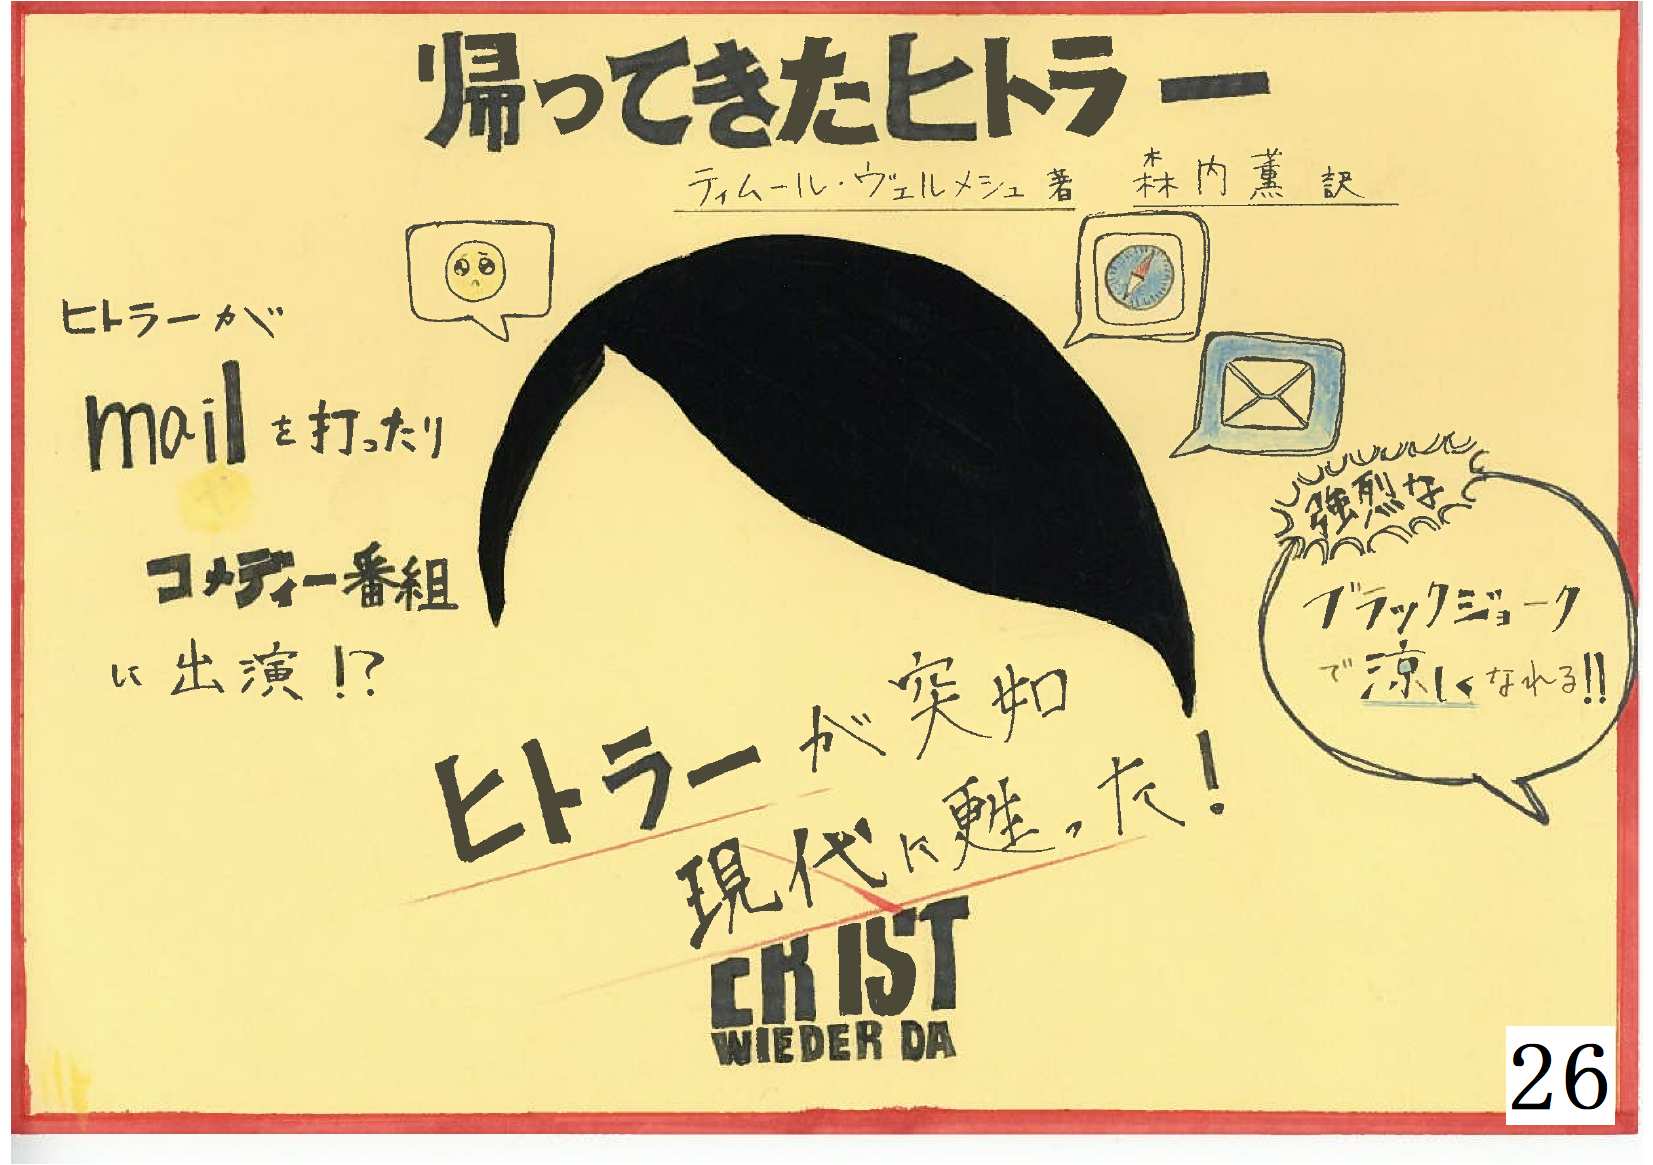 帰ってきたヒトラー
ティムール・ヴェルメシュ著 森内薫訳
ヒトラーが
mailを打ったり
コメディー番組
に出演!?
強烈な
ブラックジョーク
で涼しくなれる!!
ヒトラーが突如
現代に甦った!
ER IST
WIEDER DA
26